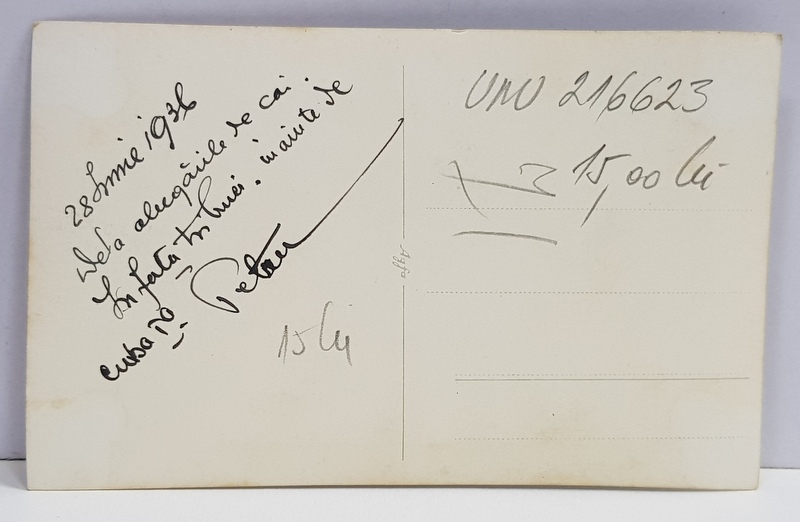 28 Iunie 1936
Dela alergările de cai.
În fața tribunei. înainte de
cursa IV
Petru
15 lei
Agfa
216623
15,00 lei